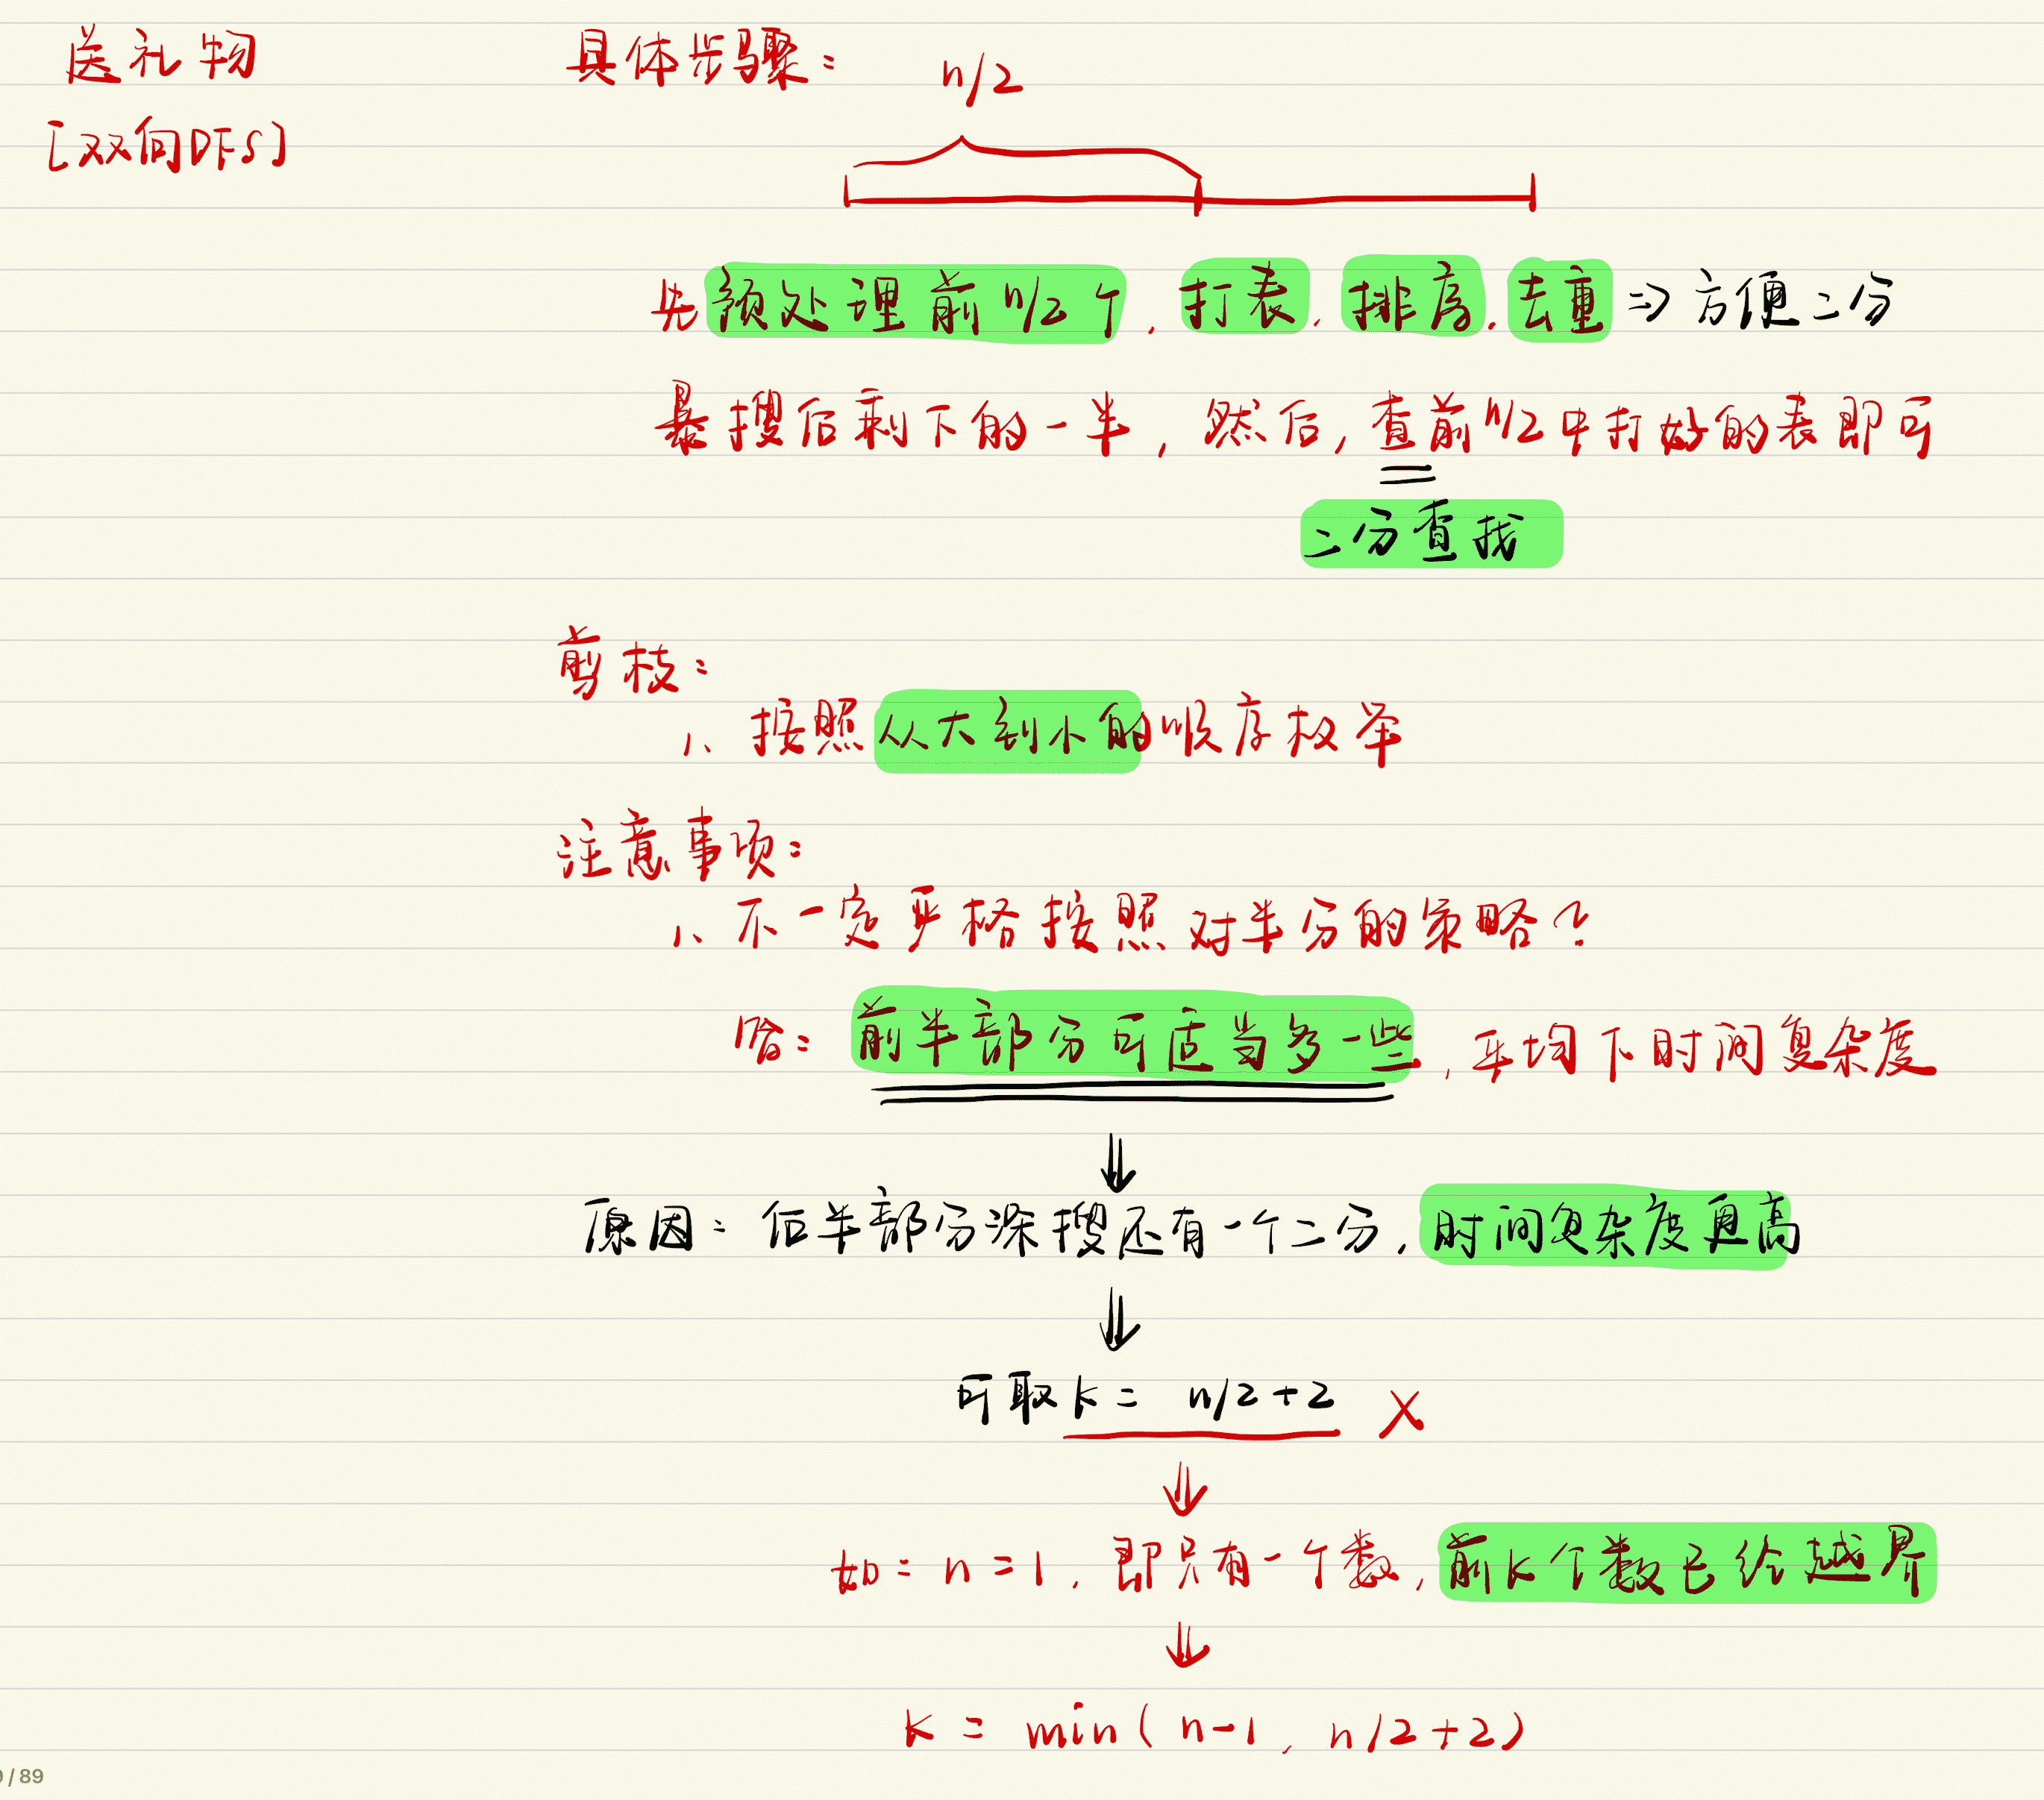 送礼物
[双向DFS]
具体步骤：
n/2
先预处理前n/2个，打表，排序，去重 => 方便二分
暴搜后剩下的一半，然后，查前n/2中打好的表即可
二分查找
剪枝：
1、按照从大到小的顺序枚举
注意事项：
1、不一定严格按照对半分的策略？
答：前半部分可适当多一些，平均下时间复杂度
原因：后半部分深搜还有一个二分，时间复杂度更高
可取k = n/2+2 X
如：n=1，即只有一个数，前k个数已经越界
k = min(n-1, n/2+2)
/89